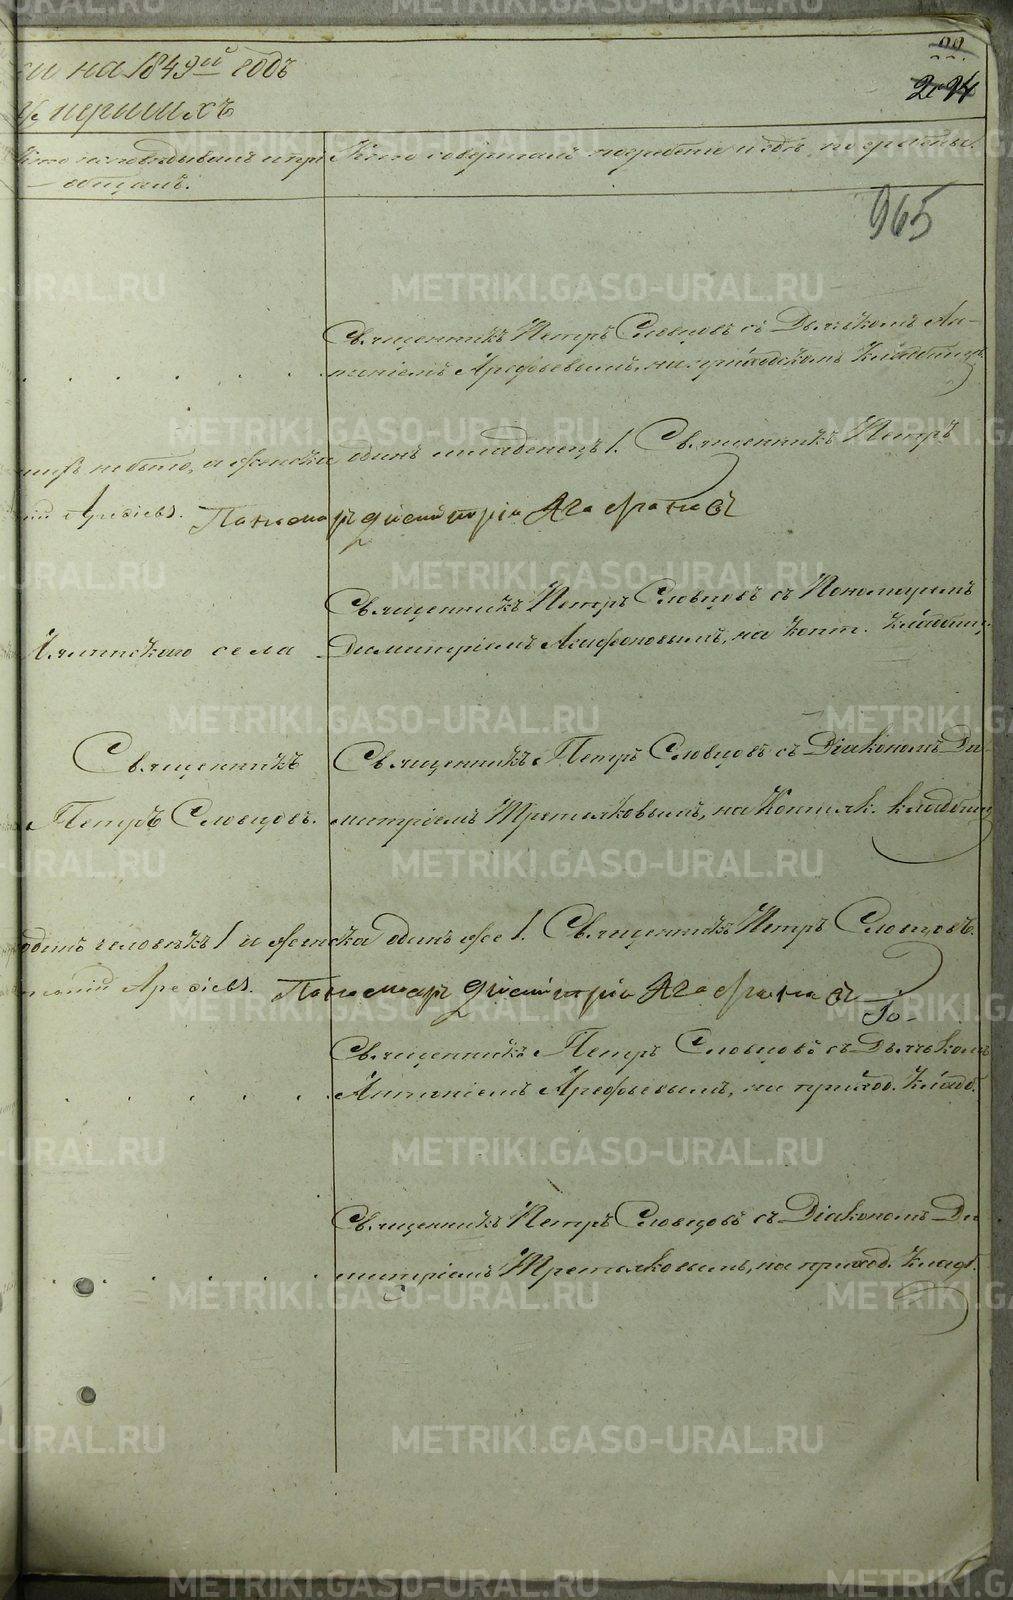 на 1849ый годъ
умершихъ
294
Кто исповѣдывалъ и прі-
общалъ.
Кто совершалъ погребеніе и гдѣ погребены.
965
Священникъ Петръ Словцовъ съ Дьячкомъ Ан-
тоніемъ Арефьевымъ, на приходскомъ кладбищѣ.
не было, а женска одинъ младенецъ 1. Священникъ Петръ
Арефіевъ. Пономарь Димитрій Агафоновъ
Священникъ Петръ Словцовъ съ Пономаремъ
села
Димитріемъ Агафоновымъ, на Копт. кладбищ.
Священникъ
Петръ Словцовъ.
Священникъ Петръ Словцовъ съ Діакономъ Ди-
митріемъ Третьяковымъ, на Коптяк. кладбищ
человѣкъ 1 и женска одинъ же 1. Священникъ Петръ Словцовъ.
Арефіевъ. Пономарь Димитрій Агафоновъ
Священникъ Петръ Словцовъ съ Дьячкомъ
Антоніемъ Арефьевымъ, на приход. кладб.
Священникъ Петръ Словцовъ съ Діакономъ Ди-
митріемъ Третьяковымъ, на приход. кладб.
METRIKI.GASO-URAL.RU